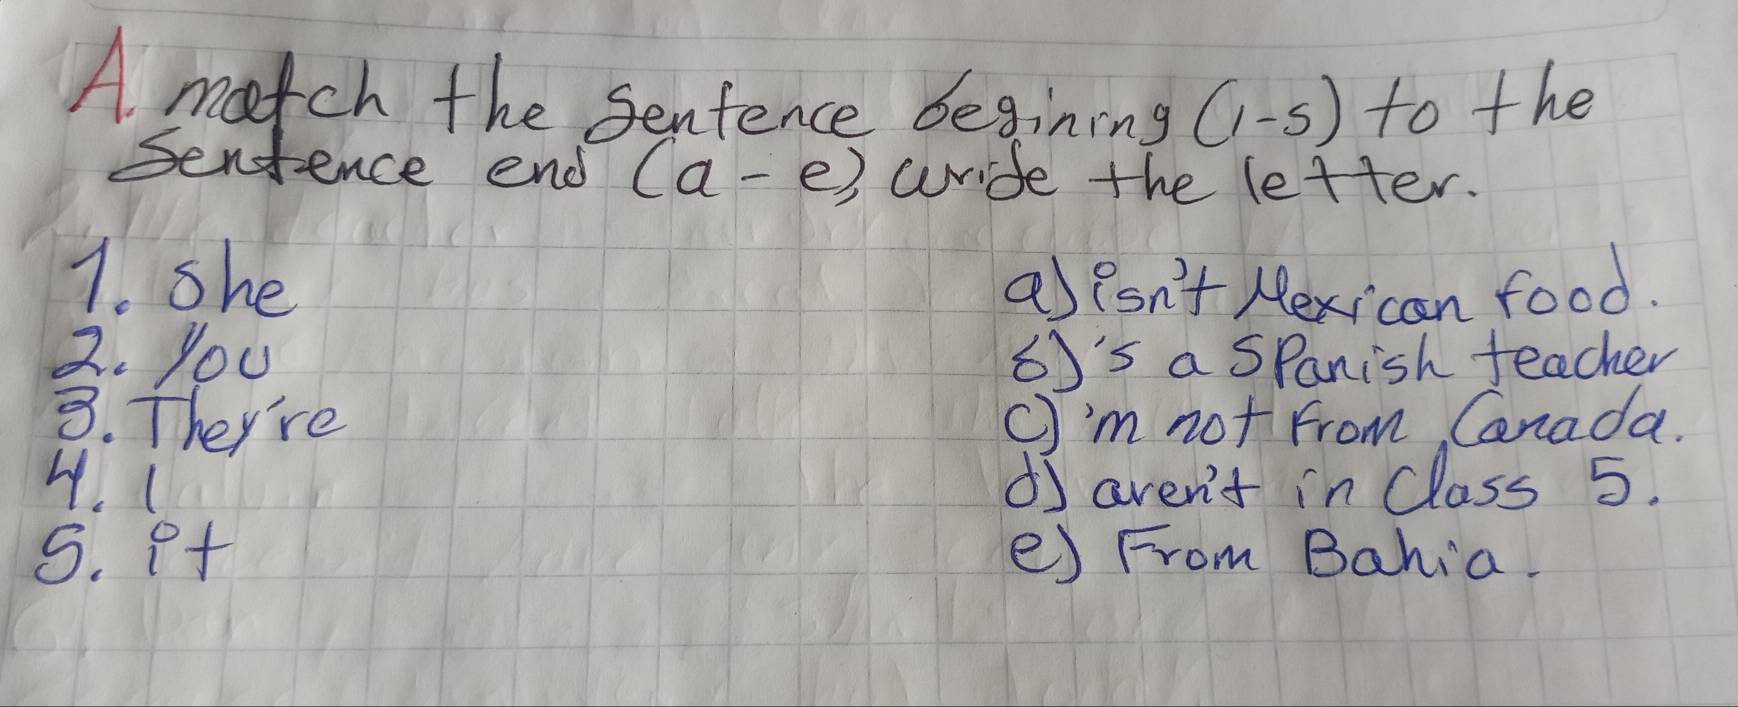 A. match the sentence begining (1-5) to the
sentence end (a-e), wride the letter.
1. She
2. You
3. They're
4. I
5. it
a) isn't Mexican food.
b) 's a Spanish teacher
c) 'm not From Canada.
d) aren't in Class 5.
e) From Bahia.